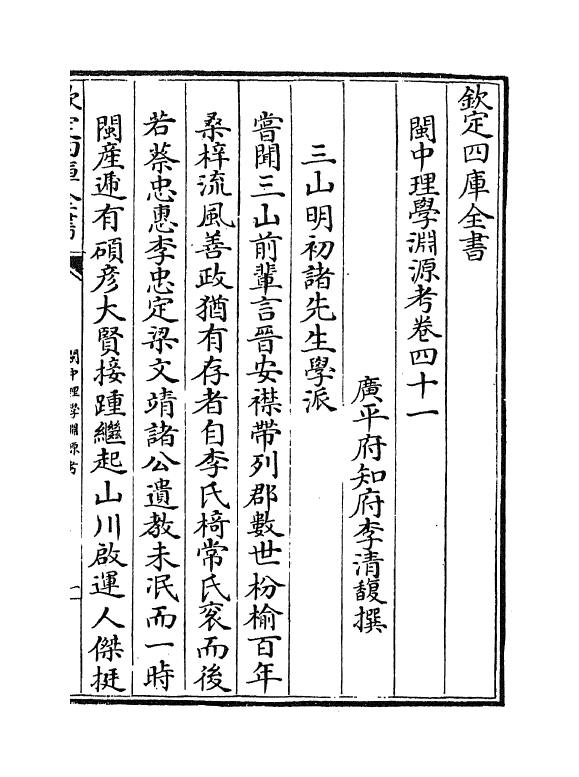 欽定四庫全書
閩中理學淵源考卷四十一
廣平府知府李清馥撰
三山明初諸先生學派
嘗聞三山前輩言晉安襟帶列郡數世枌榆百年
桑梓流風善政猶有存者自李氏椅常氏衮而後
若蔡忠惠李忠定梁文靖諸公遺教未泯而一時
閩產遞有碩彥大賢接踵繼起山川啟運人傑挺
欽定四庫全書
閩中理學淵源考
一